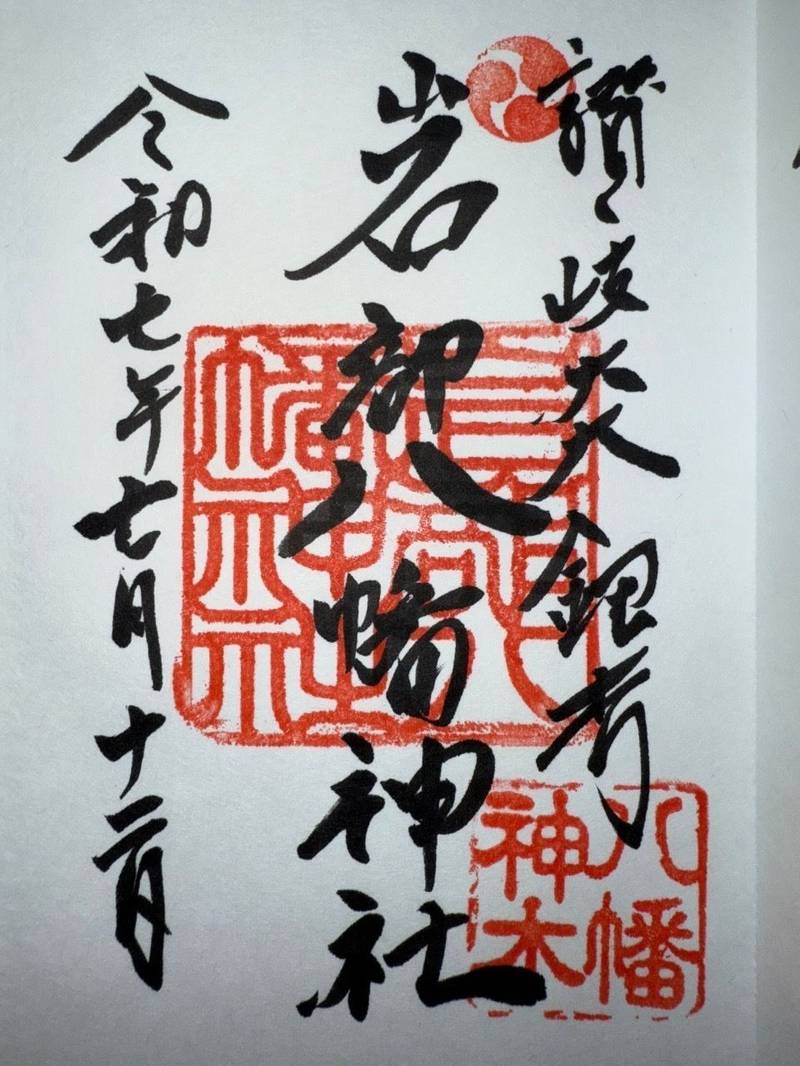 讃岐大銀杏
岩部八幡神社
令和七年七月十二日
八幡
神木